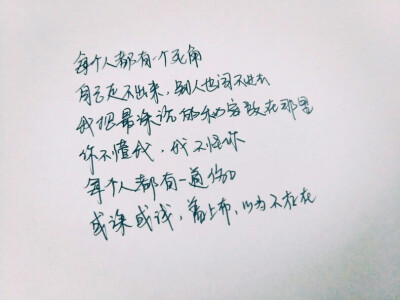 每个人都有一个死角
自己走不出来，别人也闯不进去
我把最深沉的秘密放在那里
你不懂我，我不怪你
每个人都有一道伤口
或深或浅，盖上布，以为不存在